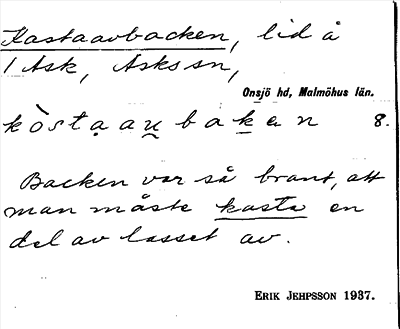 Kastaavbacken, lid å
1 Ask, Asks sn,
Onsjö hd, Malmöhus län.
kòstạau̯ bak̠en 8.
Backen var så brant, att
man måste kasta en
del av lasset av.
ERIK JEHPSSON 1937.